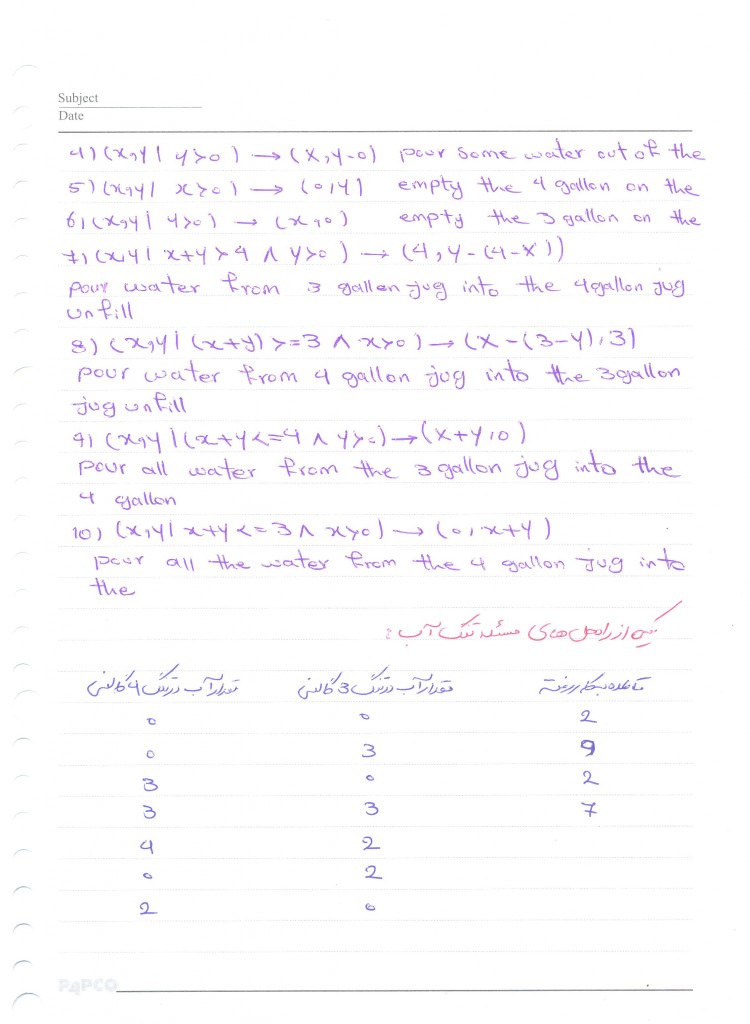 Subject
Date
4) (x,y | y>0) → (x, y-0) pour some water out of the
5) (x,y | x>0) → (0,y) empty the 4 gallon on the
6) (x,y | y>0) → (x,0) empty the 3 gallon on the
7) (x,y | x+y>4 ∧ y>0) → (4, y-(4-x))
pour water from 3 gallon jug into the 4gallon jug
unfill
8) (x,y | (x+y) >=3 ∧ x>0) → (x-(3-y), 3)
pour water from 4 gallon jug into the 3gallon
jug unfill
9) (x,y | (x+y<=4 ∧ y>0) → (x+y,0)
pour all water from the 3 gallon jug into the
4 gallon
10) (x,y | x+y<=3 ∧ x>0) → (0, x+y)
pour all the water from the 4 gallon jug into
the
یکی از راه‌حل‌های مسئله تنگ آب:
مقدار آب در تنگ 4 گالنی مقدار آب در تنگ 3 گالنی قاعده بکار رفته
0 0 2
0 3 9
3 0 2
3 3 7
4 2
0 2
2 0
PAPCO